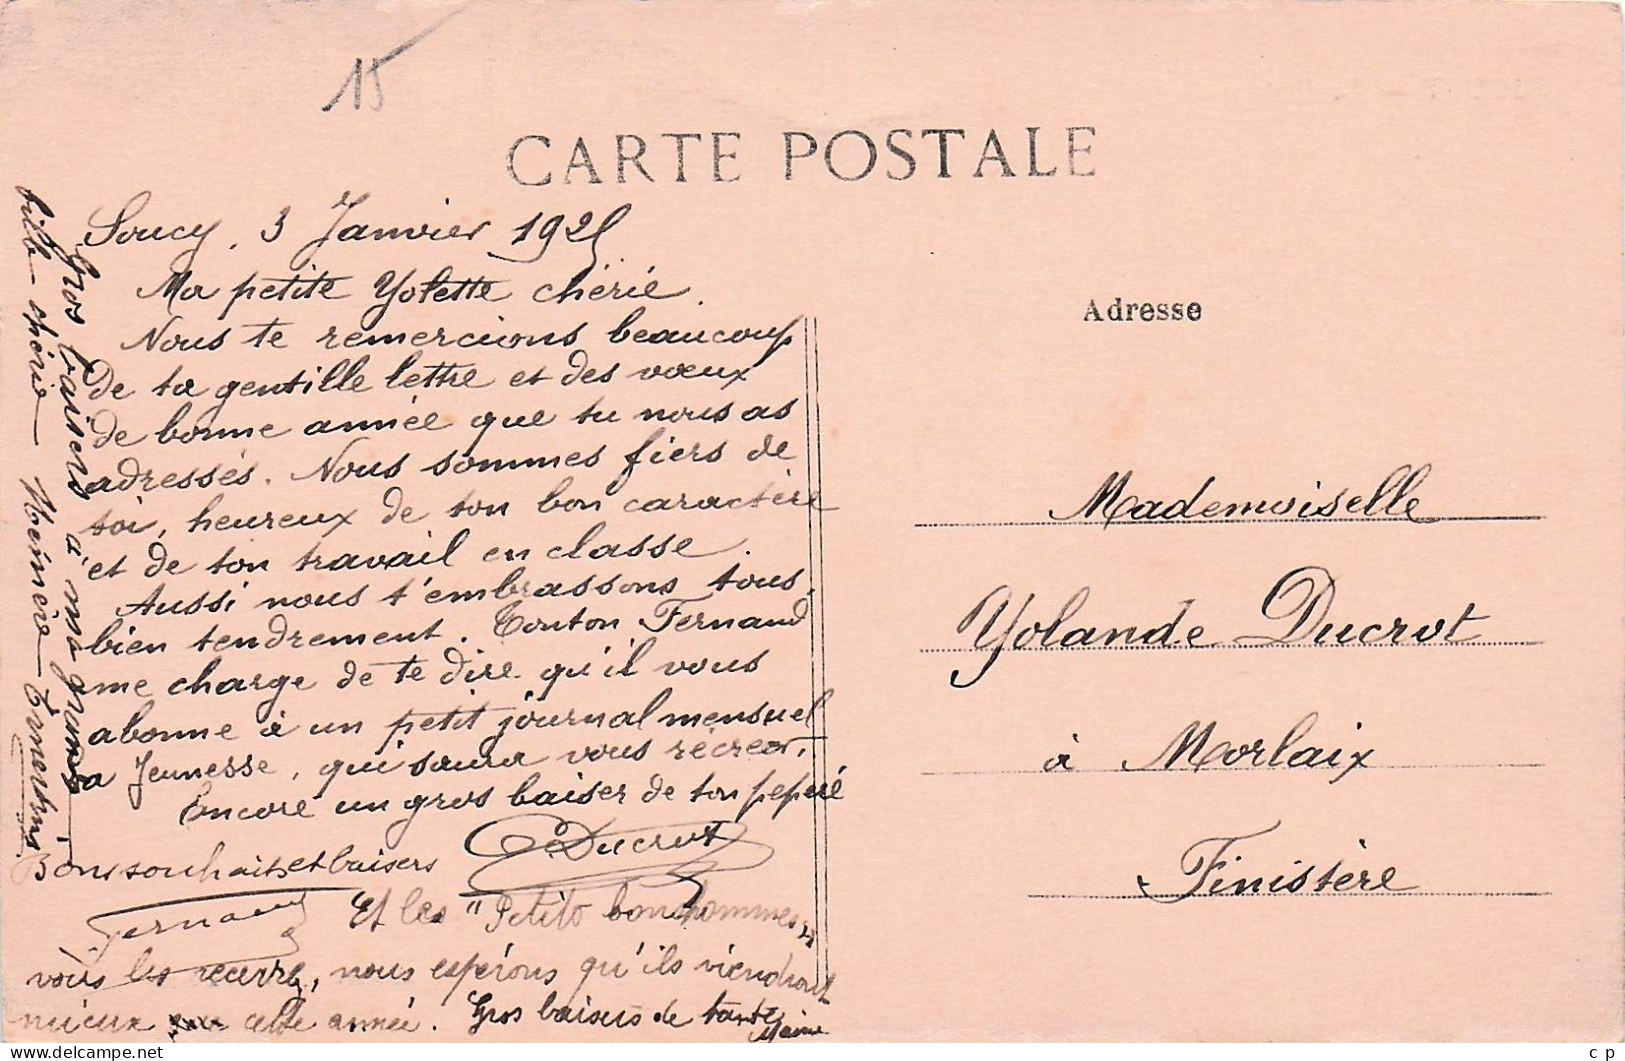 15
CARTE POSTALE
Soucy, 3 Janvier 1925
Ma petite Yolette chérie.
Nous te remercions beaucoup
de ta gentille lettre et des vœux
de bonne année que tu nous as
adressés. Nous sommes fiers de
toi, heureux de ton bon caractère
et de ton travail en classe.
Aussi nous t'embrassons tous,
bien tendrement. Tonton Fernand
me charge de te dire qu'il vous
abonne à un petit journal mensuel
la Jeunesse, qui saura vous récréer.
Encore un gros baiser de ton peperé
Ducrot
Bons souhaits et baisers
Fernand
Et les "Petits bonshommes"
vous les recevrez, nous espérons qu'ils viendront
mieux cette année. Gros baisers de tante
Gros baisers à ma grande
fille chérie
Adresse
Mademoiselle
Yolande Ducrot
à Morlaix
Finistère
c p